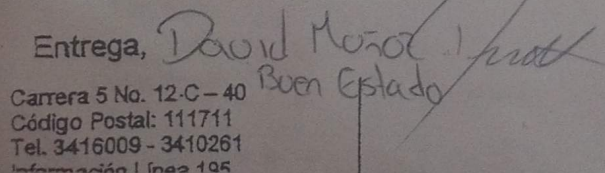 Entrega, David Muñoz
Buen Estado
Carrera 5 No. 12-C – 40
Código Postal: 111711
Tel. 3416009 - 3410261
Información Línea 195